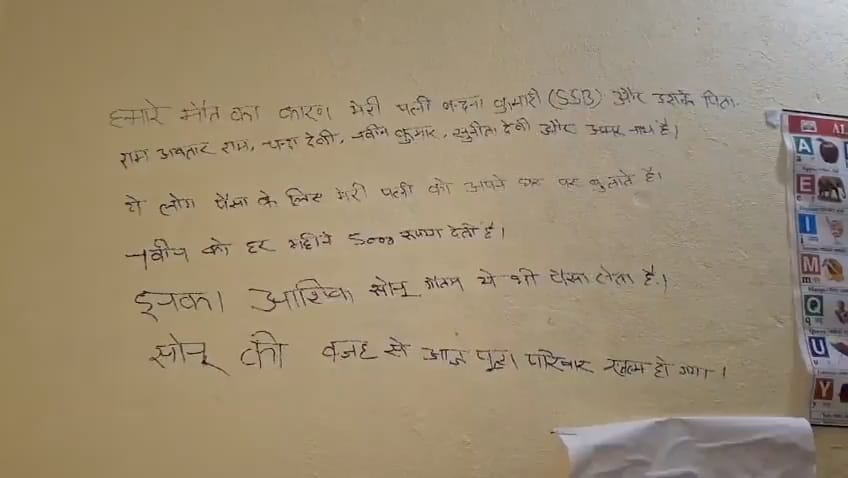 हमारे मौत का कारण मेरी पत्नी कुमारी (SSB) और उसके पिता
राम अवतार राम, देवी, नवीन कुमार, सुनीता देवी और है।
ये लोग पैसा के लिए मेरी पत्नी को अपने घर पर बुलाते है।
नवीन को हर महीने 5000 रूपया देती है।
इनका आशिक सोनू ये भी पैसा लेता है।
सोनू की वजह से आज पूरा परिवार खत्म हो गया।
AL
A
E
I
M
m
Q
q
U
Y